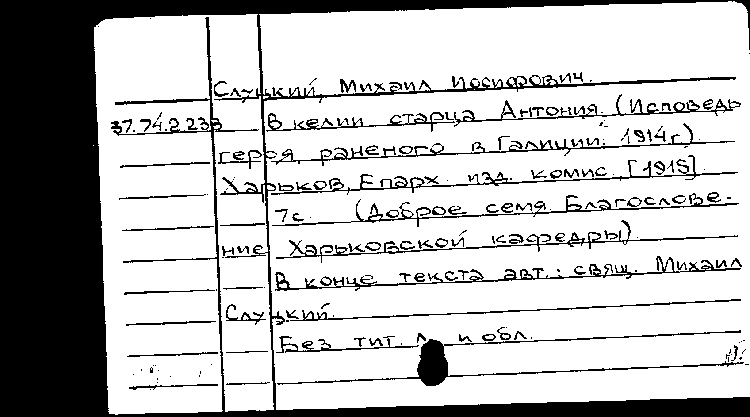 Слуцкий, Михаил Иосифович.
37.74.2.233 В келии старца Антония. (Исповедь
героя, раненого в Галиции. 1914г.)
Харьков, Епарх. изд. комис. [1915].
7с. (Доброе семя. Благослове-
ние Харьковской кафедры).
В конце текста авт.: свящ. Михаил
Слуцкий.
Без тит. л. и обл.